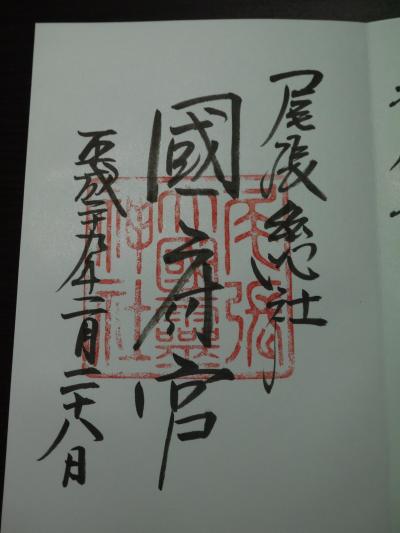 尾張総社
國府宮
平成二十九年二月二十八日
尾張
大國靈
神社